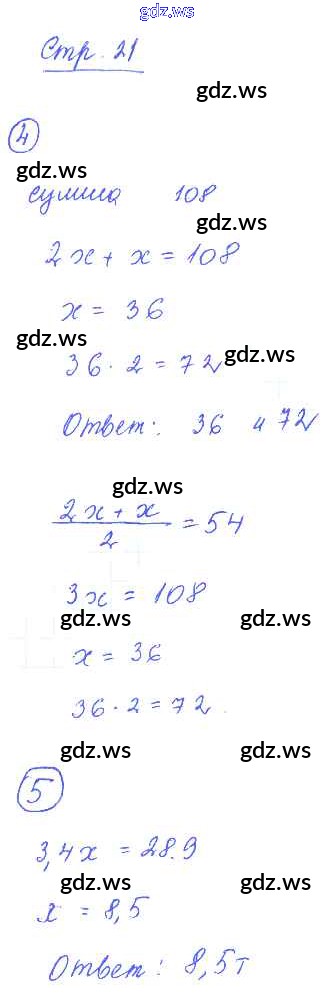 gdz.ws
Стр. 21
gdz.ws
4
gdz.ws
сумма 108
gdz.ws
2x + x = 108
x = 36
gdz.ws
36 · 2 = 72
gdz.ws
Ответ: 36 и 72
gdz.ws
2x + x
= 54
2
3x = 108
gdz.ws gdz.ws
x = 36
36 · 2 = 72
gdz.ws gdz.ws
5
3,4x = 28.9
gdz.ws gdz.ws
x = 8,5
gdz.ws
Ответ: 8,5т